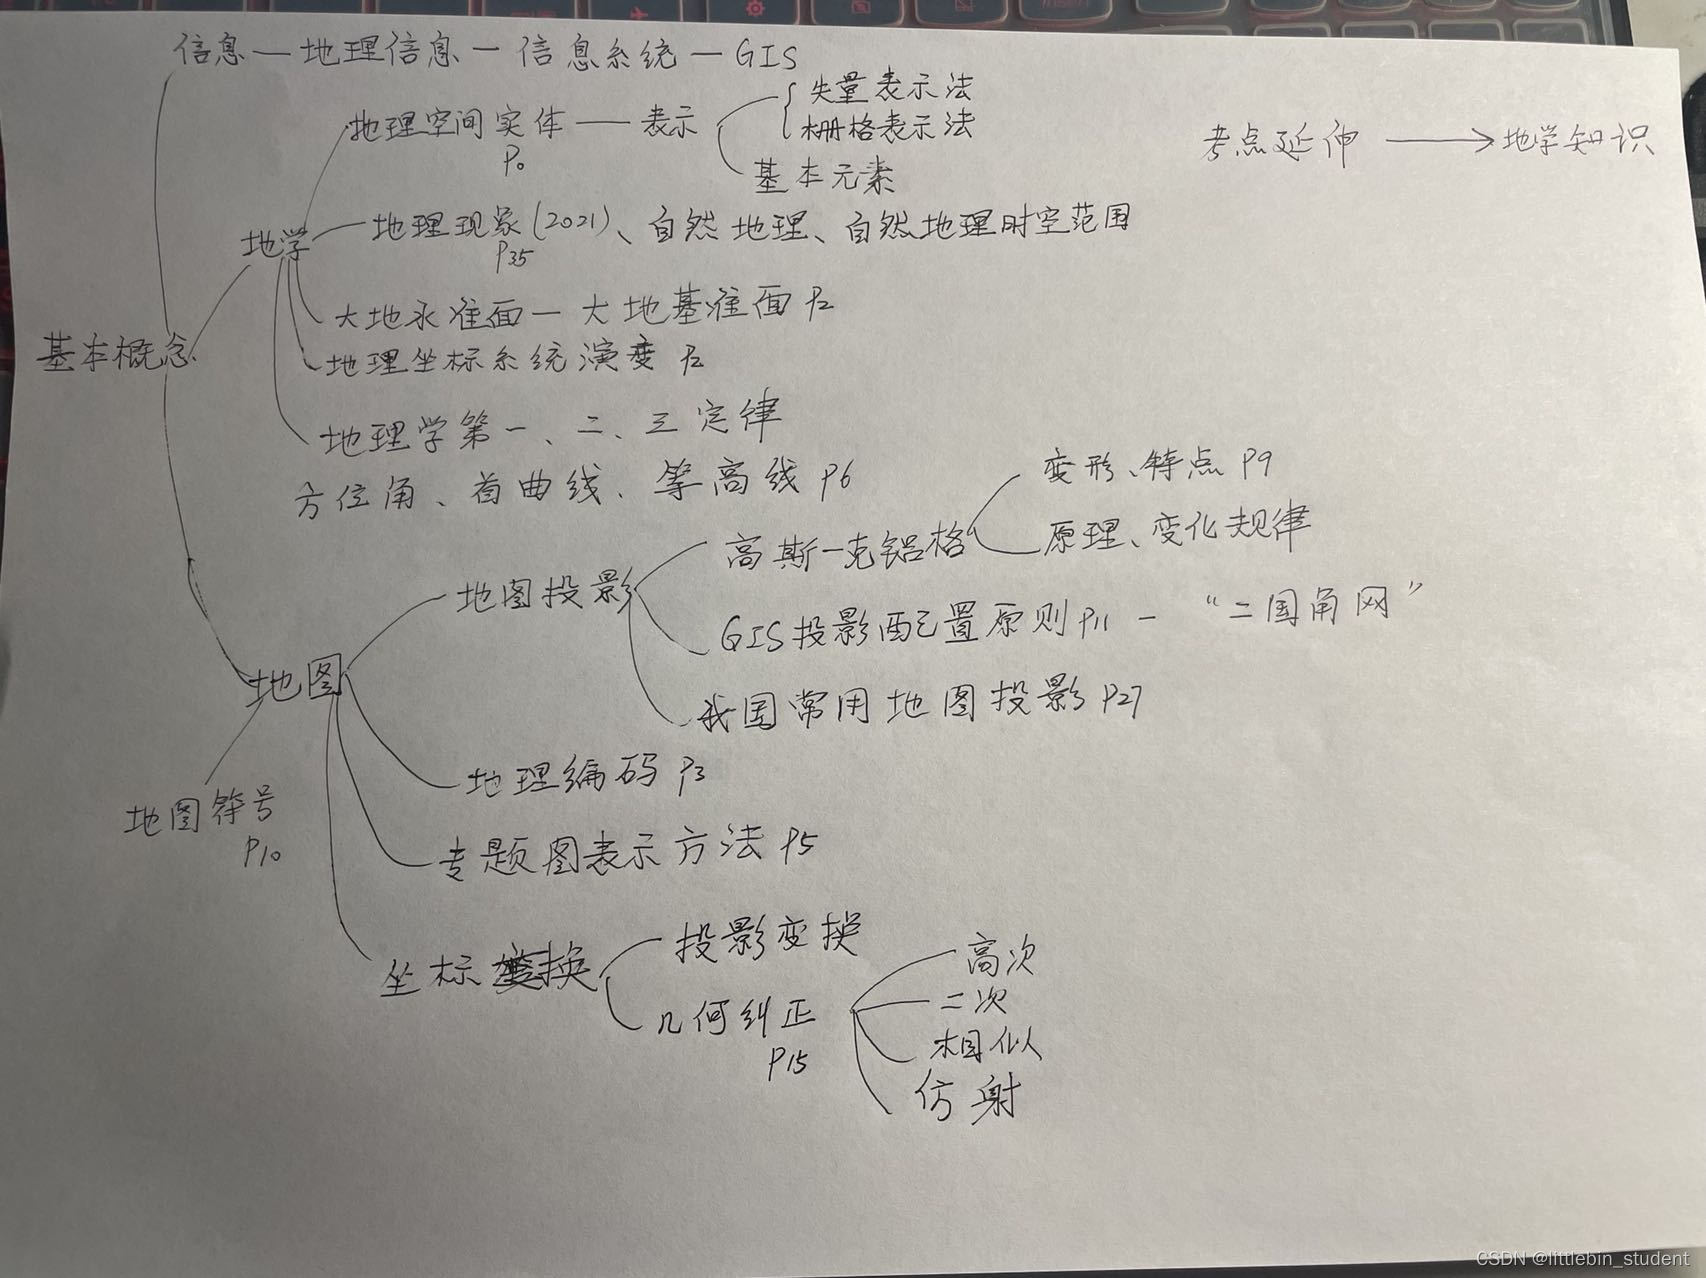 信息—地理信息—信息系统—GIS
地理空间实体——表示
P0
矢量表示法
栅格表示法
基本元素
考点延伸——→地学知识
地学
地理现象(2021)、自然地理、自然地理时空范围
P35
大地水准面—大地基准面 P2
基本概念
地理坐标系统演变 P2
地理学第一、二、三定律
方位角、首曲线、等高线 P6
地图投影
高斯—克吕格
变形、特点 P9
原理、变化规律
GIS投影配置原则 P11 — “二国角网”
我国常用地图投影 P27
地图
地理编码 P3
地图符号
P10
专题图表示方法 P5
坐标变换
投影变换
几何纠正
P15
高次
二次
相似
仿射
CSDN @littlebin_student